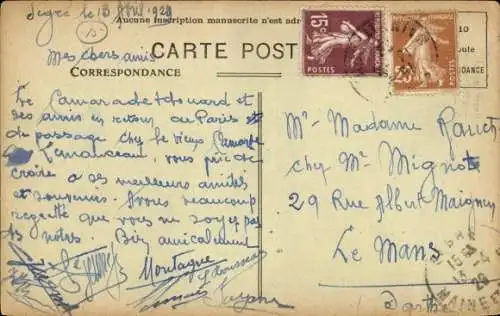 Segré le 13 Avril 1929
Aucune inscription manuscrite n'est
CARTE POST
CORRESPONDANCE
DANCE
15c
POSTES
25c
POSTES
Mes chers amis
Le Camarade Edouard et
ses amis en retour de Paris et
de passage chez le vieux Camarade
Lemanceau, vous prie de
croire a ses meilleurs amitiés
et souvenirs. Avons beaucoup
regretté que vous ne soyez pas
des notres. Bien amicalement
Montagne
Mr Madame
chez Mr Mignot
29 Rue Albert Maignen
Le Mans
Sarthe